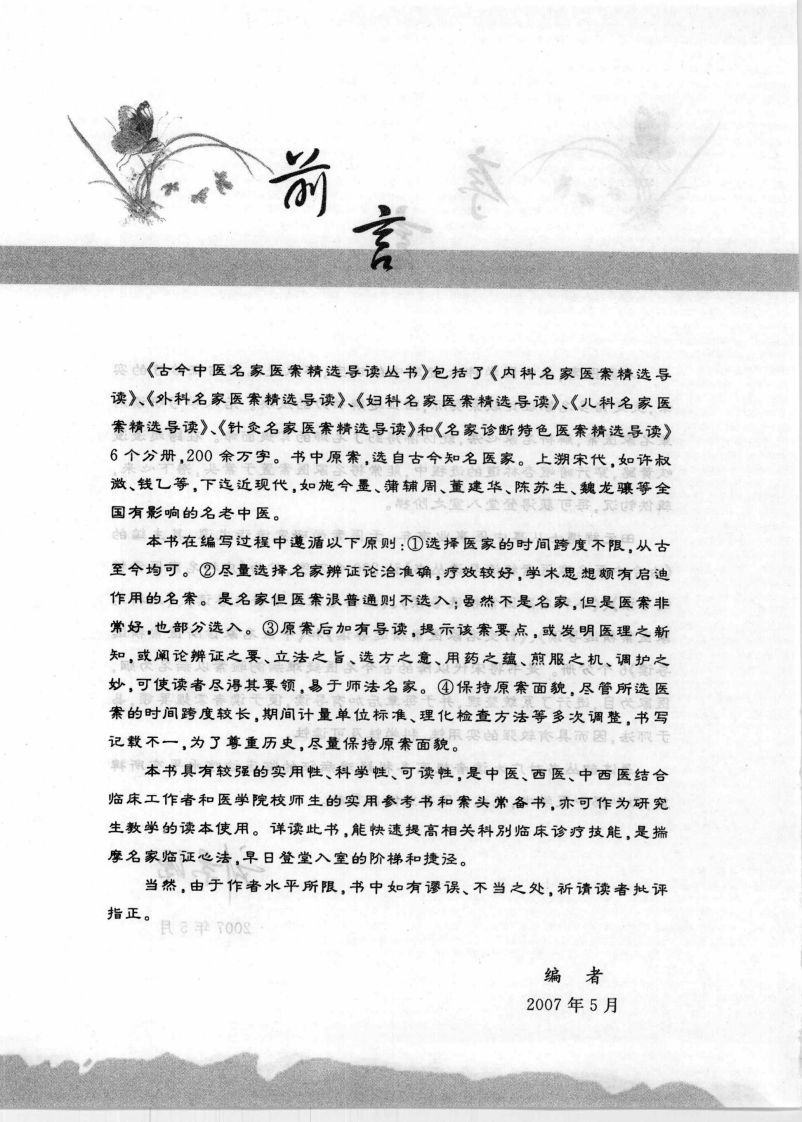 前言
《古今中医名家医案精选导读丛书》包括了《内科名家医案精选导
读》、《外科名家医案精选导读》、《妇科名家医案精选导读》、《儿科名家医
案精选导读》、《针灸名家医案精选导读》和《名家诊断特色医案精选导读》
6个分册,200余万字。书中原案,选自古今知名医家。上溯宋代,如许叔
微、钱乙等,下迄近现代,如施今墨、蒲辅周、董建华、陈苏生、魏龙骧等全
国有影响的名老中医。
本书在编写过程中遵循以下原则:①选择医家的时间跨度不限,从古
至今均可。②尽量选择名家辨证论治准确,疗效较好,学术思想颇有启迪
作用的名案。是名家但医案很普通则不选入;虽然不是名家,但是医案非
常好,也部分选入。③原案后加有导读,提示该案要点,或发明医理之新
知,或阐论辨证之要、立法之旨、选方之意、用药之蕴、煎服之机、调护之
妙,可使读者尽得其要领,易于师法名家。④保持原案面貌,尽管所选医
案的时间跨度较长,期间计量单位标准、理化检查方法等多次调整,书写
记载不一,为了尊重历史,尽量保持原案面貌。
本书具有较强的实用性、科学性、可读性,是中医、西医、中西医结合
临床工作者和医学院校师生的实用参考书和案头常备书,亦可作为研究
生教学的读本使用。详读此书,能快速提高相关科别临床诊疗技能,是揣
摩名家临证心法,早日登堂入室的阶梯和捷径。
当然,由于作者水平所限,书中如有谬误、不当之处,祈请读者批评
指正。
编 者
2007年5月